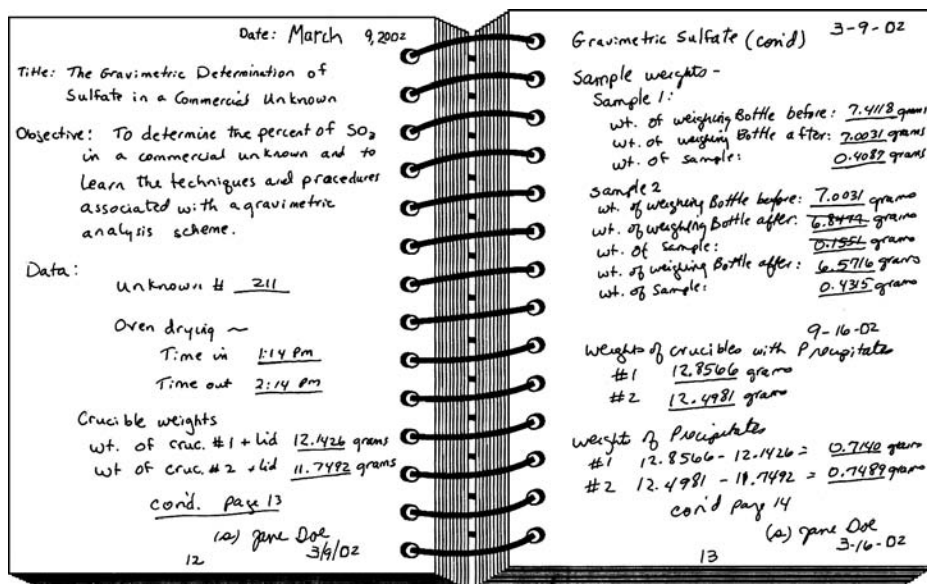 Date: March 9, 2002
Title: The Gravimetric Determination of
Sulfate in a Commercial Unknown
Objective: To determine the percent of SO3
in a commercial unknown and to
learn the techniques and procedures
associated with a gravimetric
analysis scheme.
Data:
Unknown # 211
Oven drying ~
Time in 1:14 pm
Time out 2:14 pm
Crucible weights
wt. of cruc. #1 + lid 12.1426 grams
wt of cruc. #2 + lid 11.7492 grams
con'd. page 13
(s) Jane Doe
3/9/02
12
Gravimetric Sulfate (con'd) 3-9-02
Sample weights -
Sample 1:
wt. of weighing Bottle before: 7.4118 grams
wt. of weighing Bottle after: 7.0031 grams
wt. of sample: 0.4087 grams
Sample 2
wt. of weighing Bottle before: 7.0031 grams
wt. of weighing Bottle after: 6.8479 grams
wt. of sample: 0.1551 grams
wt. of weighing Bottle after: 6.5716 grams
wt. of sample: 0.4315 grams
9-16-02
Weights of crucibles with Precipitates
#1 12.8566 grams
#2 12.4981 grams
Weights of Precipitates
#1 12.8566 - 12.1426 = 0.7140 grams
#2 12.4981 - 11.7492 = 0.7489 grams
con'd page 14
(s) Jane Doe
3-16-02
13